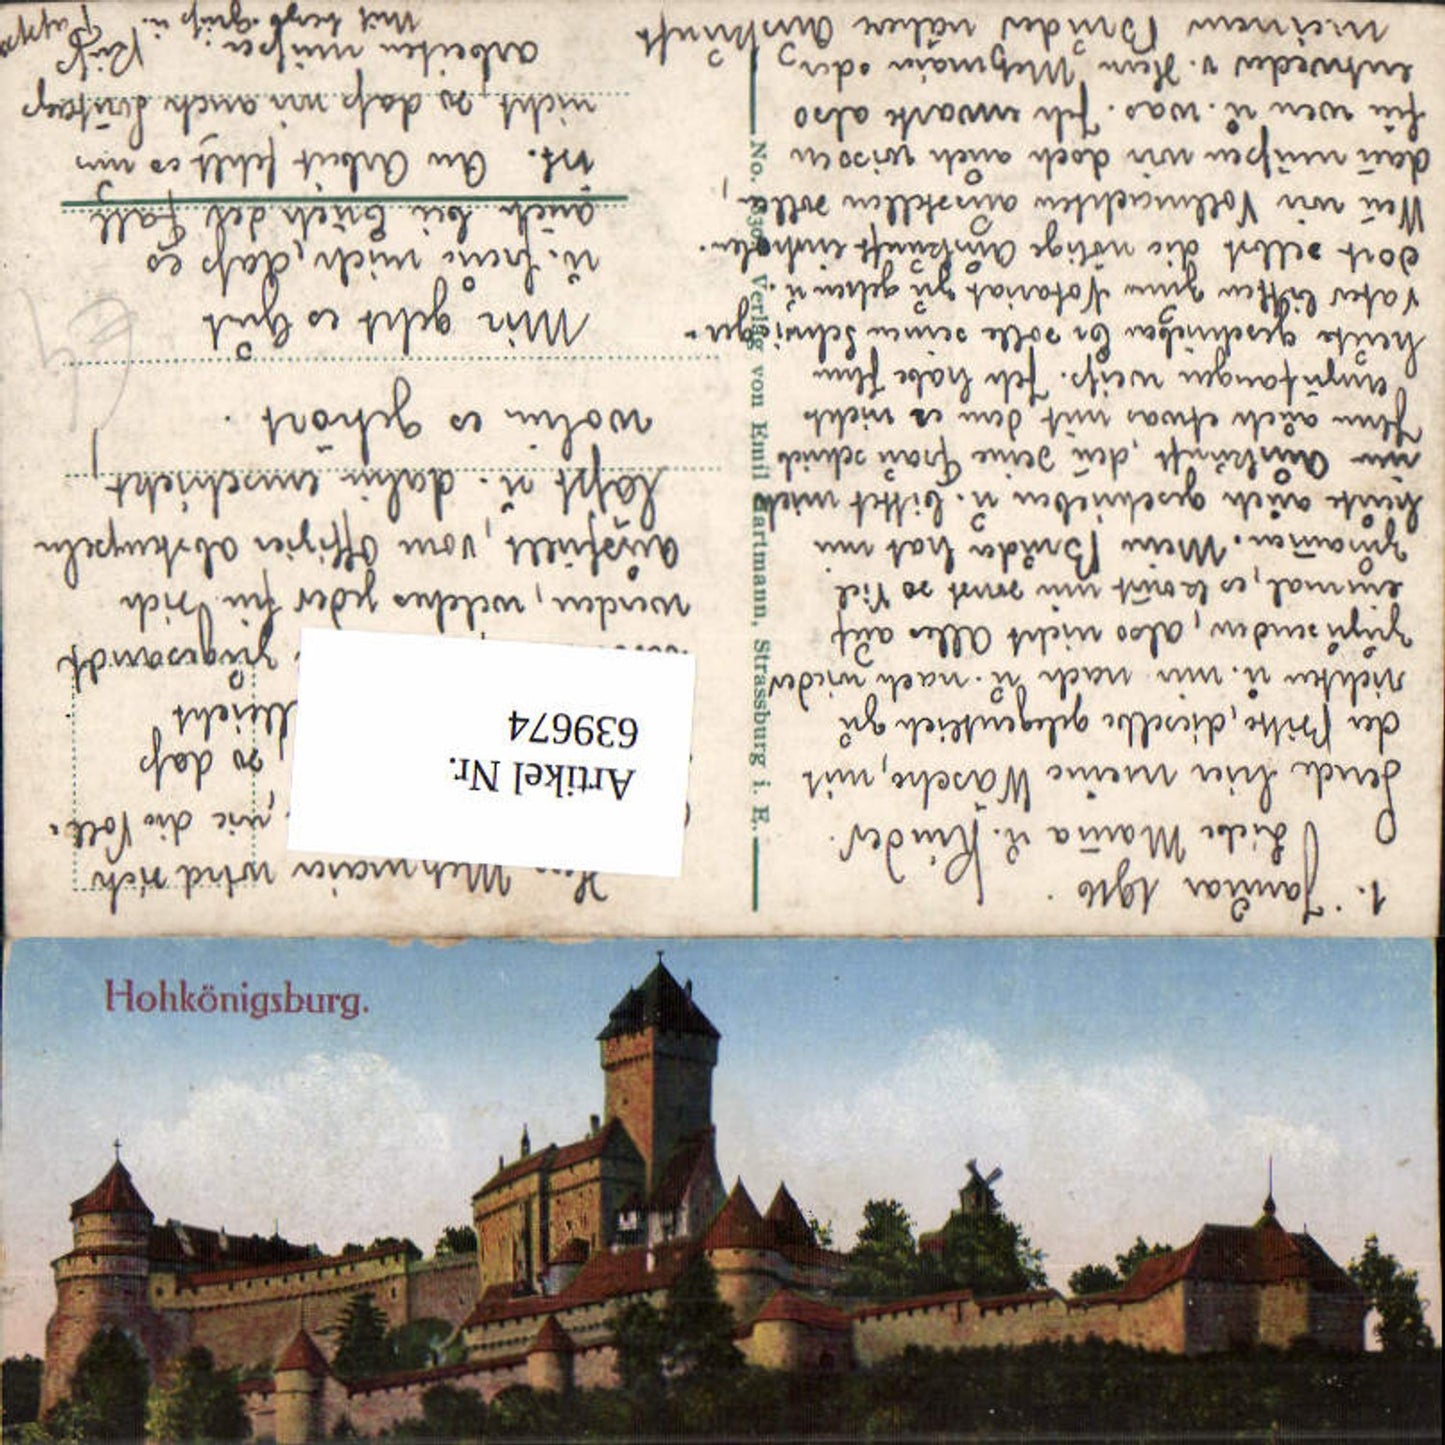 1. Januar 1916.
Liebe Mama u. Kinder.
Sende hier meine Wäsche, mit
der Bitte, dieselbe gelegentlich zu
richten u. mir nach u. nach wieder
zuzusenden, also nicht Alles auf
einmal, es kommt nun sonst so viel
zusammen. Mein Bruder hat mir
heute auch geschrieben u. bittet mich
um Auskunft, den seine Frau schrieb
Ihm auch etwas mit dem er nichts
anzufangen weiß. Ich habe Ihm
heute geschrieben Er solle seinen Schwieger-
vater bitten zum Notariat zu gehen u.
dort selbst die nötige Auskunft einholen.
Wen wir Vollmachten ausstellen sollen,
dan müßen wir doch auch wissen
für wen u. was. Ich erwarte also
entweder v. Herr Mehmaier oder
meinem Bruder näher Auskunft
Herr Mehmaier wird sich
wie die Voll-
so daß
zugesandt
werden, welches jeder für sich
ausfüllt, vom Offizier abstempeln
läßt u. dahin einschickt
wohin es gehört.
Mir geht es Gut
u. freue mich, daß es
auch bei Euch der Fall
ist. An Arbeit fehlt es uns
nicht, so daß wir auch Sontags
arbeiten müßen.
Mit herzl. Gruß u. Kuß
Pappa
No. Verlag von Emil Hartmann, Strassburg i. E.
Artikel Nr.
639674
Hohkönigsburg.